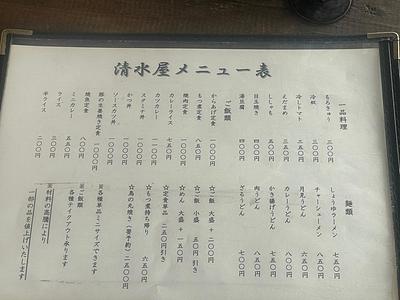 清水屋メニュー表
一品料理
もろきゅう 三〇〇円
冷奴 三〇〇円
冷しトマト 四〇〇円
えだまめ 四〇〇円
ししゃも 五〇〇円
目玉焼き 四〇〇円
湯豆腐 五〇〇円
ご飯類
からあげ定食 一〇〇〇円
もつ煮定食 八五〇円
焼肉定食 一〇〇〇円
カレーライス 七五〇円
カツカレー 一〇〇〇円
スタミナ丼
かつ丼 一〇〇〇円
ソースカツ丼
豚の生姜焼き定食 一〇〇〇円
焼魚定食 八〇〇円
ミニカレー 五五〇円
ライス
半ライス 二〇〇円
麺類
しょうゆラーメン 七五〇円
チャーシューメン
月見うどん 六五〇円
カレーうどん 八〇〇円
かき揚げうどん 七五〇円
肉うどん 八五〇円
ざるうどん 七〇〇円
☆ご飯 大盛 +一〇〇円
☆ご飯 小盛 五〇円引き
☆めん 大盛 +一五〇円
☆定食単品 二五〇円引き
☆もつ煮持ち帰り 六五〇円
☆鳥の丸焼き(要予約) 二五〇〇円
※各種単品ミニサイズできます
※ご飯類
各種テイクアウト承ります
※材料の高騰により
一部の品を値上げいたします